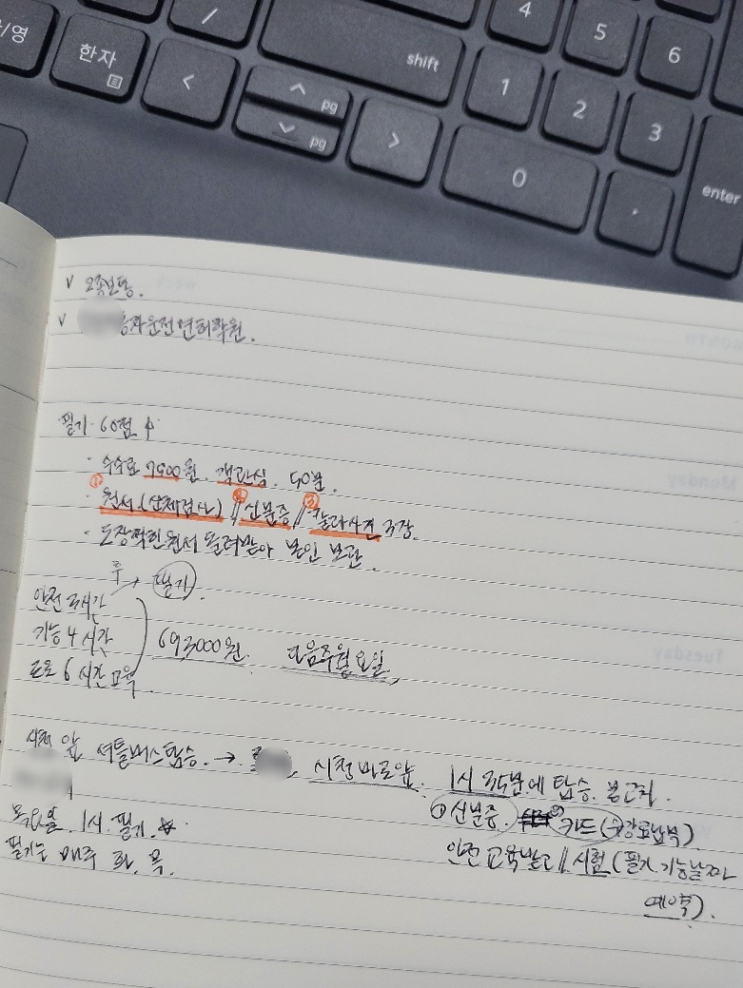 /영
한자
/
<
shift
pg
pg
>
4
5
6
1
2
3
0
.
enter
v 2종보통.
v 자동차운전면허학원.
필기 60점 ↑
· 수수료 7500원. 객관식. 50분.
· ① 원서(신체검사) // ② 신분증 // ③ 칼라사진 3장.
· 도장찍힌원서 돌려받아 본인 보관.
후 → 필기.
안전 3시간
기능 4시간
도로 6시간 교육
693000원. 다음주 월요일.
시청 앞 셔틀버스탑승. → 시청 바로앞. 1시 35분에 탑승. 봉고차.
① 신분증. ② 카드(수강료납부)
목요일 1시. 필기.
안전교육받고 // 시험(필기, 기능날짜
필기는 매주 화, 목.
예약).
Monday
Tuesday